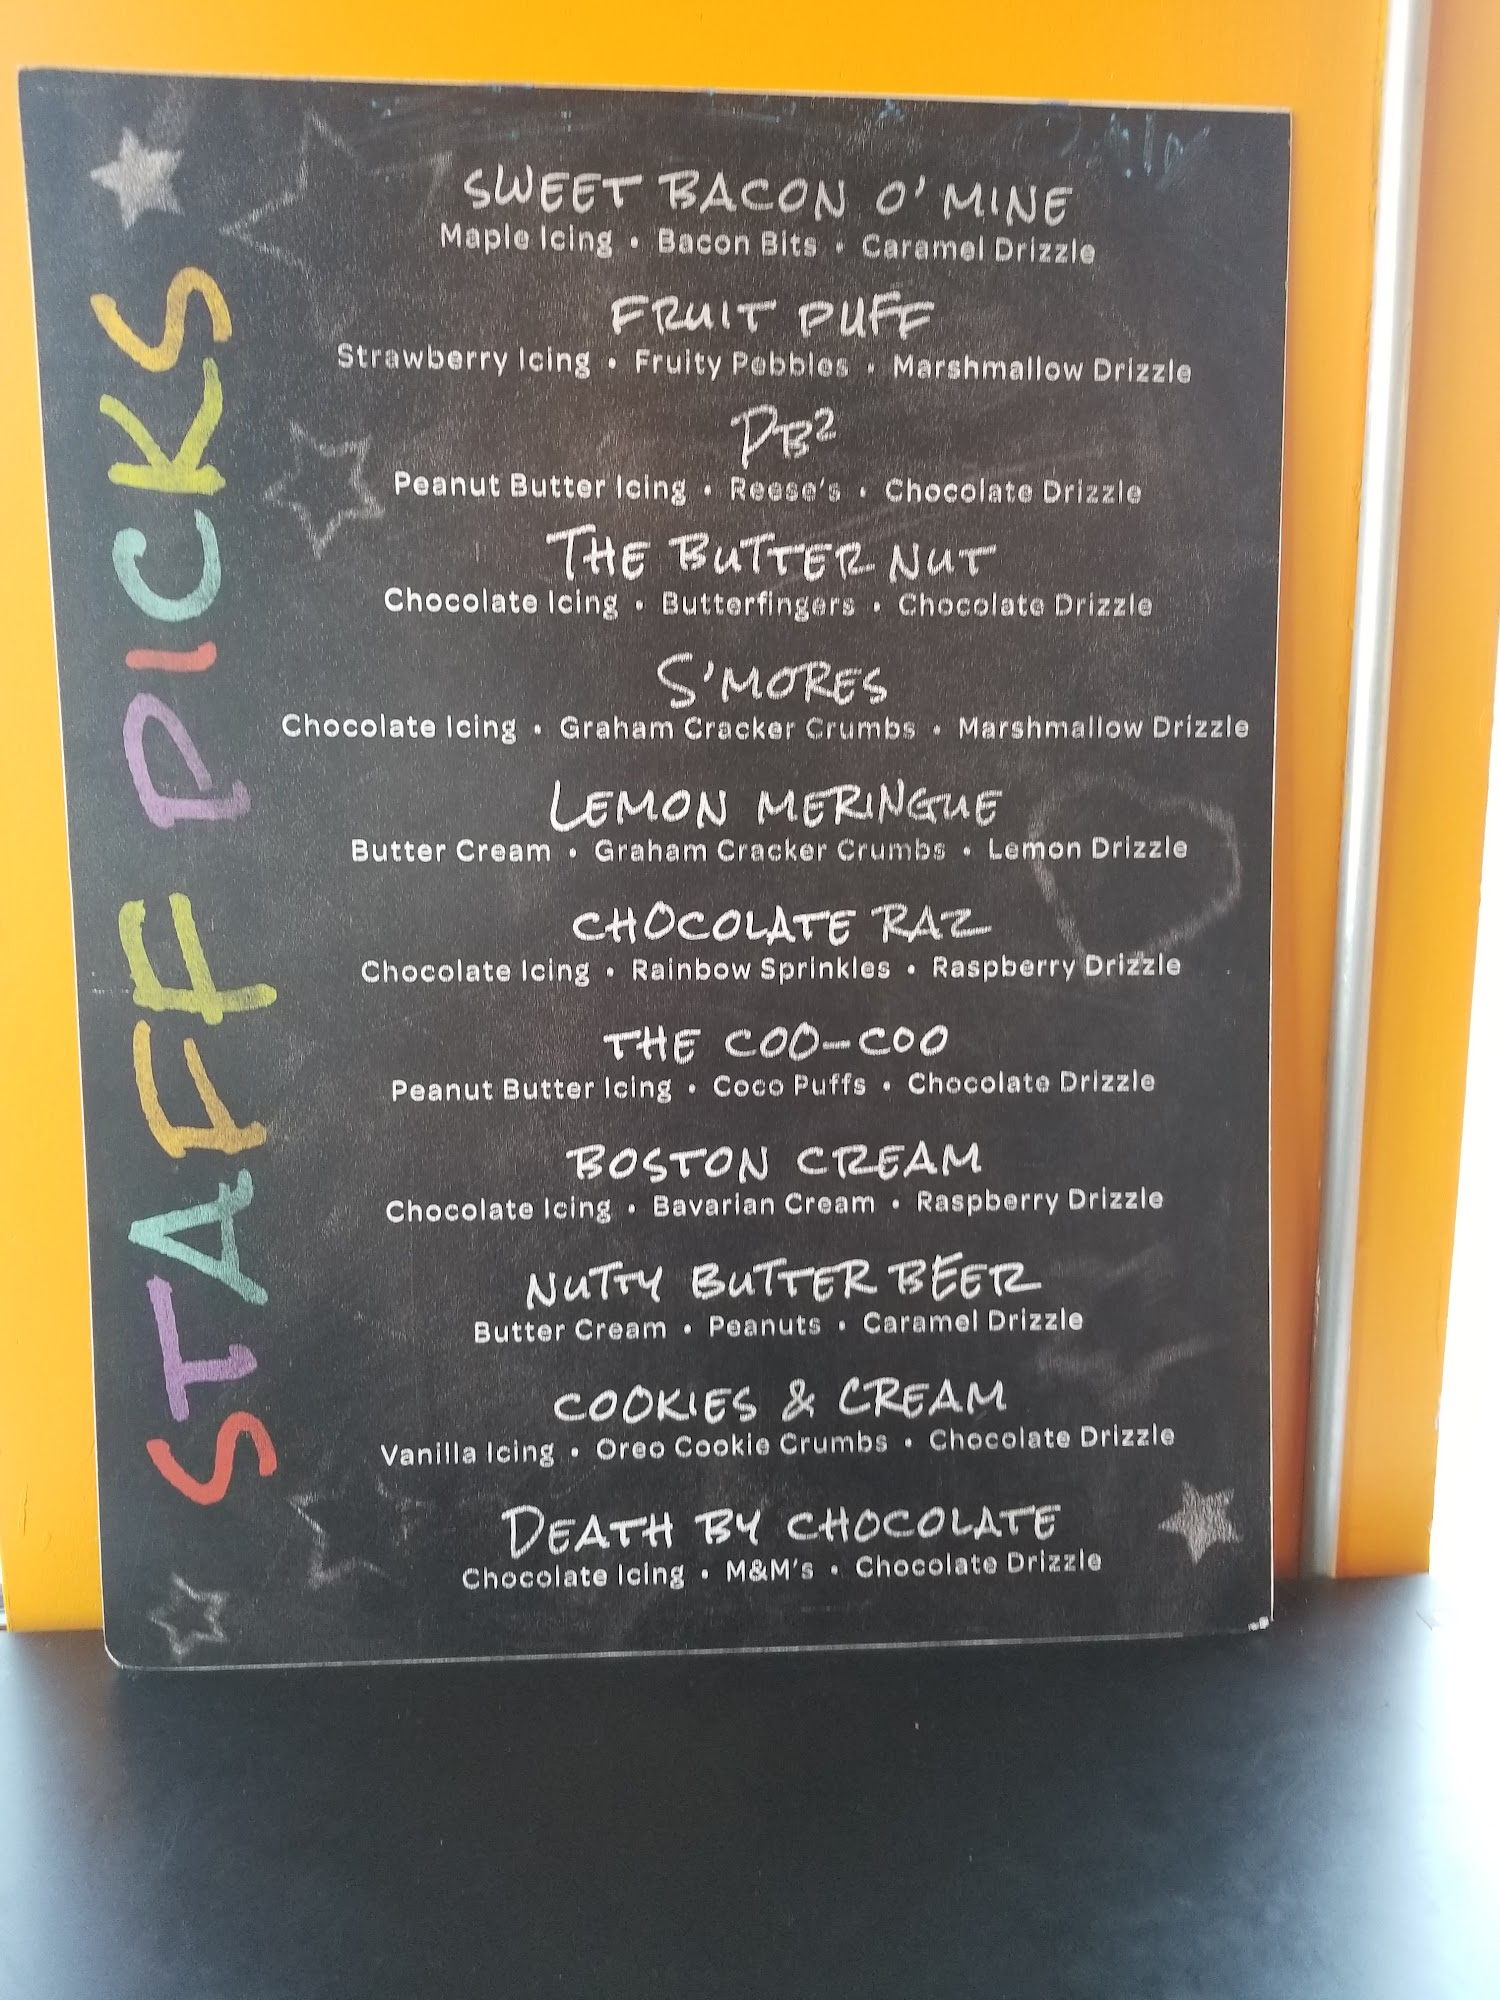 STAFF PICKS
SWEET BACON O' MINE
Maple Icing • Bacon Bits • Caramel Drizzle
FRUIT PUFF
Strawberry Icing • Fruity Pebbles • Marshmallow Drizzle
PB²
Peanut Butter Icing • Reese's • Chocolate Drizzle
THE BUTTER NUT
Chocolate Icing • Butterfingers • Chocolate Drizzle
S'MORES
Chocolate Icing • Graham Cracker Crumbs • Marshmallow Drizzle
LEMON MERINGUE
Butter Cream • Graham Cracker Crumbs • Lemon Drizzle
CHOCOLATE RAZ
Chocolate Icing • Rainbow Sprinkles • Raspberry Drizzle
THE COO-COO
Peanut Butter Icing • Coco Puffs • Chocolate Drizzle
BOSTON CREAM
Chocolate Icing • Bavarian Cream • Raspberry Drizzle
NUTTY BUTTER BEER
Butter Cream • Peanuts • Caramel Drizzle
COOKIES & CREAM
Vanilla Icing • Oreo Cookie Crumbs • Chocolate Drizzle
DEATH BY CHOCOLATE
Chocolate Icing • M&M's • Chocolate Drizzle